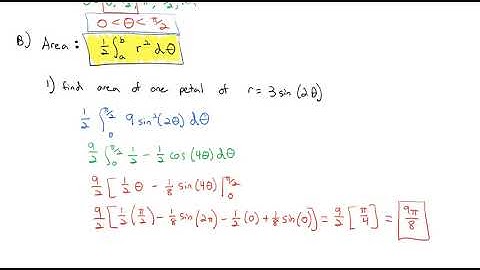 0 < θ < π/2
B) Area: 1/2 ∫_a^b r² dθ
1) find area of one petal of r = 3 sin(2θ)
1/2 ∫_0^{π/2} 9 sin²(2θ) dθ
9/2 ∫_0^{π/2} 1/2 - 1/2 cos(4θ) dθ
9/2 [ 1/2 θ - 1/8 sin(4θ) |_0^{π/2}
9/2 [ 1/2 (π/2) - 1/8 sin(2π) - 1/2 (0) + 1/8 sin(0) ] = 9/2 [ π/4 ] = 9π/8